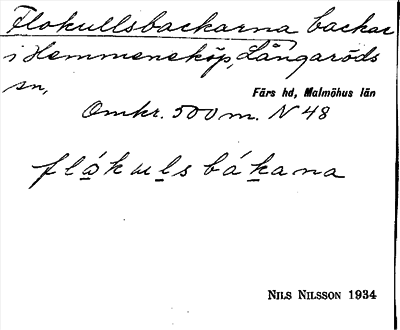 Flokullsbackarna backar
i Hemmeneköp, Långaröds
sn,
Färs hd, Malmöhus län
Omkr. 500 m. N 48
flókulsbákana
NILS NILSSON 1934